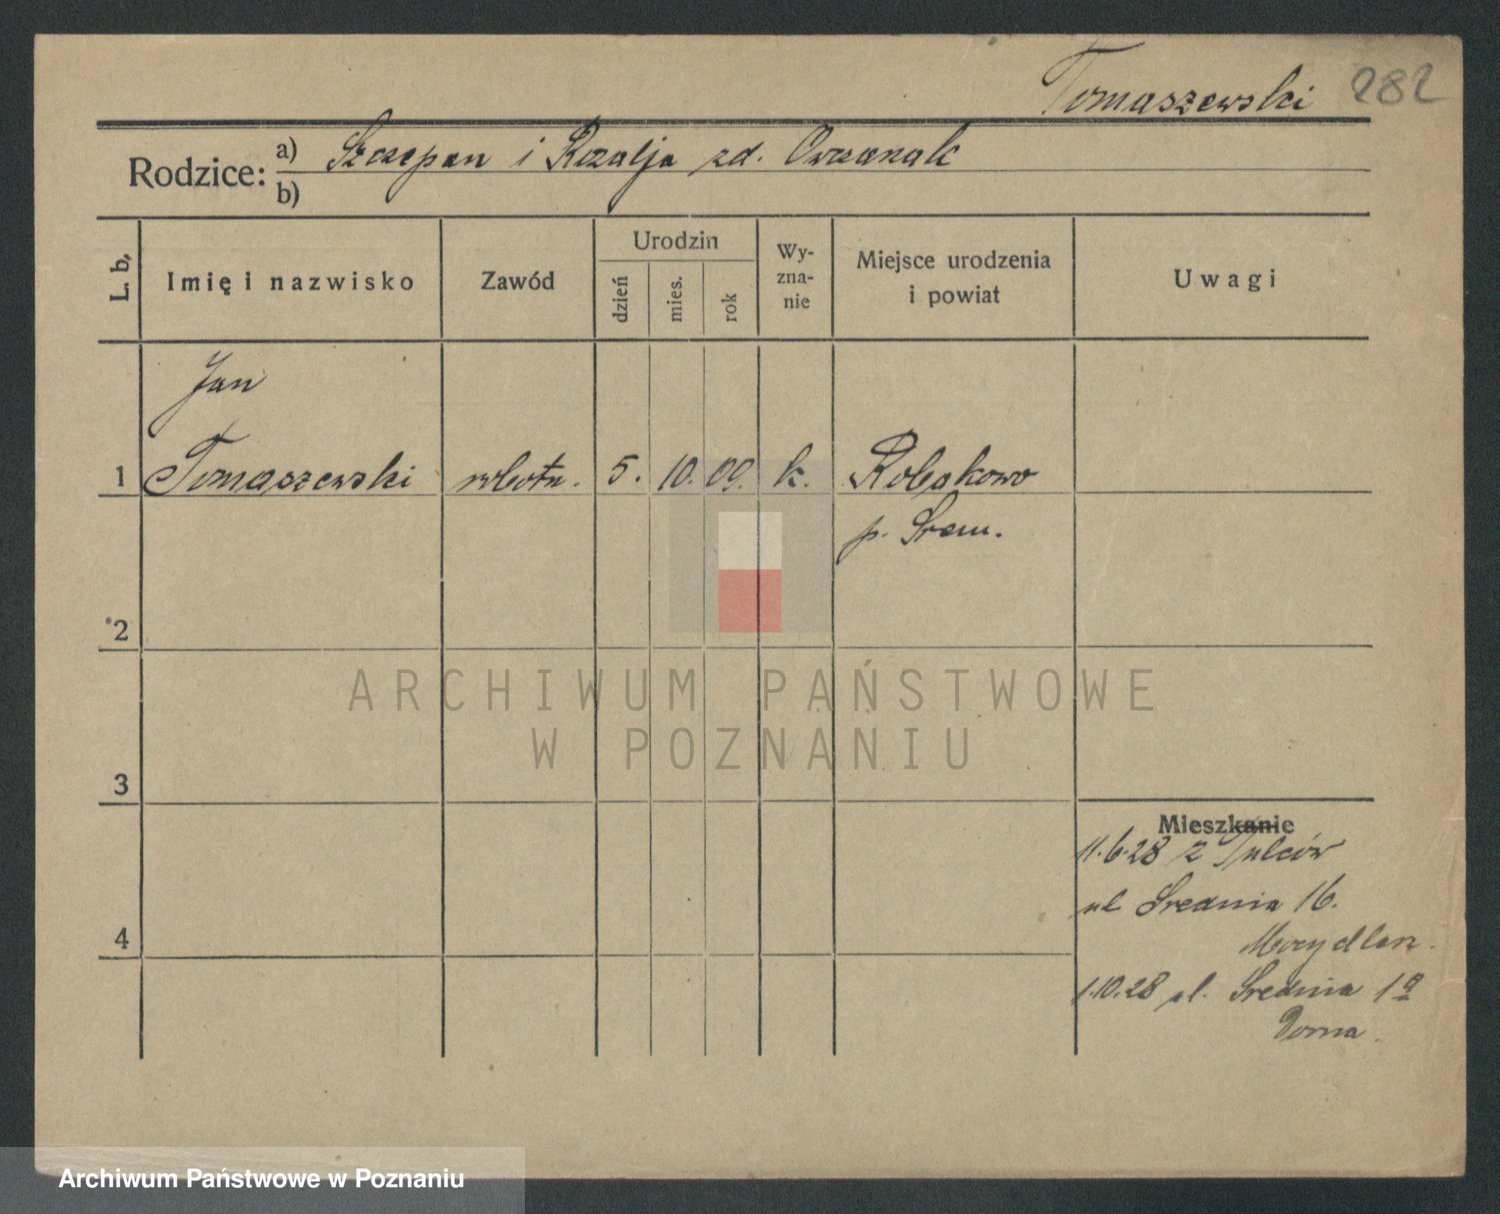 Tomaszewski 282
Rodzice: a) Szczepan i Rozalja zd. Owczarzak
b)
L. b. Imię i nazwisko Zawód Urodzin dzień mies. rok Wy-zna-nie Miejsce urodzenia i powiat Uwagi
Jan
1 Tomaszewski robotn. 5. 10. 09. k. Robakowo
p. Srem.
2
ARCHIWUM PAŃSTWOWE
W POZNANIU
3
Mieszkanie
11.6.28 z Tulców
ul Srednia 16.
4
1.10.28 ul. Srednia 1a
Archiwum Państwowe w Poznaniu